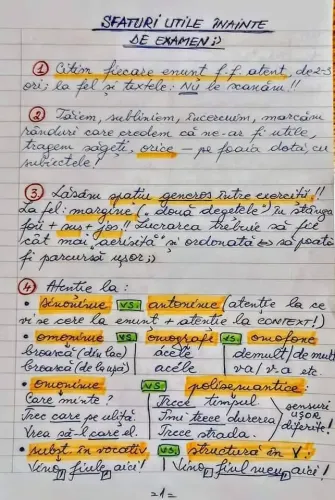 SFATURI UTILE ÎNAINTE
DE EXAMEN ;)
① Citim fiecare enunț f.f. atent, de 2-3
ori; la fel și textele: NU le scanăm!!
② Tăiem, subliniem, încercuim, marcăm
rânduri care credem că ne-ar fi utile,
tragem săgeți, orice - pe foaia dată, cu
subiectele!
③. Lăsăm spațiu generos între exerciții!!
La fel: margine („două degetele") în stânga
foii + sus + jos!! Lucrarea trebuie să fie
cât mai „aerisită" și ordonată ⇔ să poată
fi parcursă ușor ;)
④ Atenție la:
• sinonime vs. antonime (atenție la ce
vi se cere la enunț + atenție la CONTEXT!)
• omonime vs. omografe vs. omofone
broască (din lac) acele demult/de mult
broască (de la ușă) acéle v-a/ va etc.
• omonime vs. polisemantice:
Care minte? Trece timpul
Trec care pe uliță. Îmi trece durerea
Vrea să-l care el. Trece strada.
sensuri
ușor
diferite!
• subst. în vocativ vs. structură în V:
Vino, fiule, aici! Vino, fiul meu, aici!
=1=